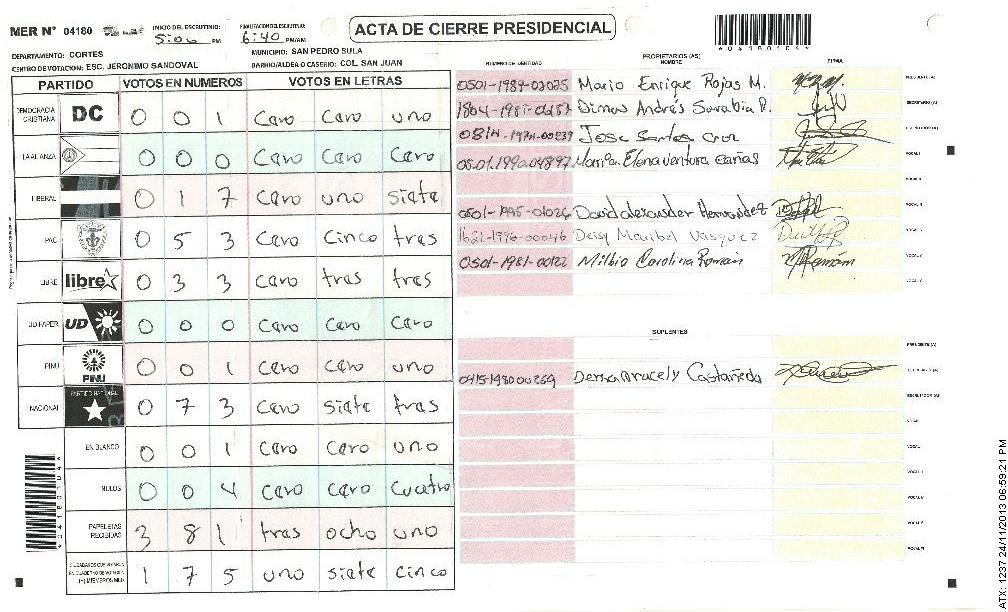 MER N° 04180
INICIO DEL ESCRUTINIO:
5:06 PM
FINALIZACION DEL ESCRUTINIO:
6:40 PM/AM
ACTA DE CIERRE PRESIDENCIAL
DEPARTAMENTO: CORTES
MUNICIPIO: SAN PEDRO SULA
CENTRO DE VOTACION: ESC. JERONIMO SANDOVAL
BARRIO/ALDEA O CASERIO: COL. SAN JUAN
PARTIDO VOTOS EN NUMEROS VOTOS EN LETRAS
DEMOCRACIA CRISTIANA DC 0 0 1 Cero Cero uno
LA ALIANZA 0 0 0 Cero Cero Cero
LIBERAL 0 1 7 Cero uno siete
PAC 0 5 3 Cero Cinco tres
LIBRE libre 0 3 3 Cero tres tres
UD-FAPER UD 0 0 0 Cero Cero Cero
PINU PINU 0 0 1 Cero Cero uno
NACIONAL PARTIDO NACIONAL 0 7 3 Cero siete tres
EN BLANCO 0 0 1 Cero Cero uno
NULOS 0 0 4 Cero Cero Cuatro
PAPELETAS RECIBIDAS 3 8 1 tres ocho uno
1 7 5 uno siete cinco
NUMERO DE IDENTIDAD
PROPIETARIOS (AS)
NOMBRE
FIRMA
0501-1989-03025 Mario Enrique Rojas M. PRESIDENTE (A)
Dimas Andrés Sarabia R. SECRETARIO (A)
0814-1974-00239 Jose Santos Cruz ESCRUTADOR (A)
05.01.1990.04897 Maria Elena Ventura Cañas VOCAL I
VOCAL II
0501-1995-01026 David alexander Hernandez VOCAL III
1621-1996-00046 Deisy Maribel Vasquez
0501-1981-00122 Milbia Carolina Roman
SUPLENTES
PRESIDENTE (A)
0415198000269 Deisa Aracely Castañeda SECRETARIO (A)
ESCRUTADOR (A)
ATX: 1237 24/11/2013 06:59:21 PM